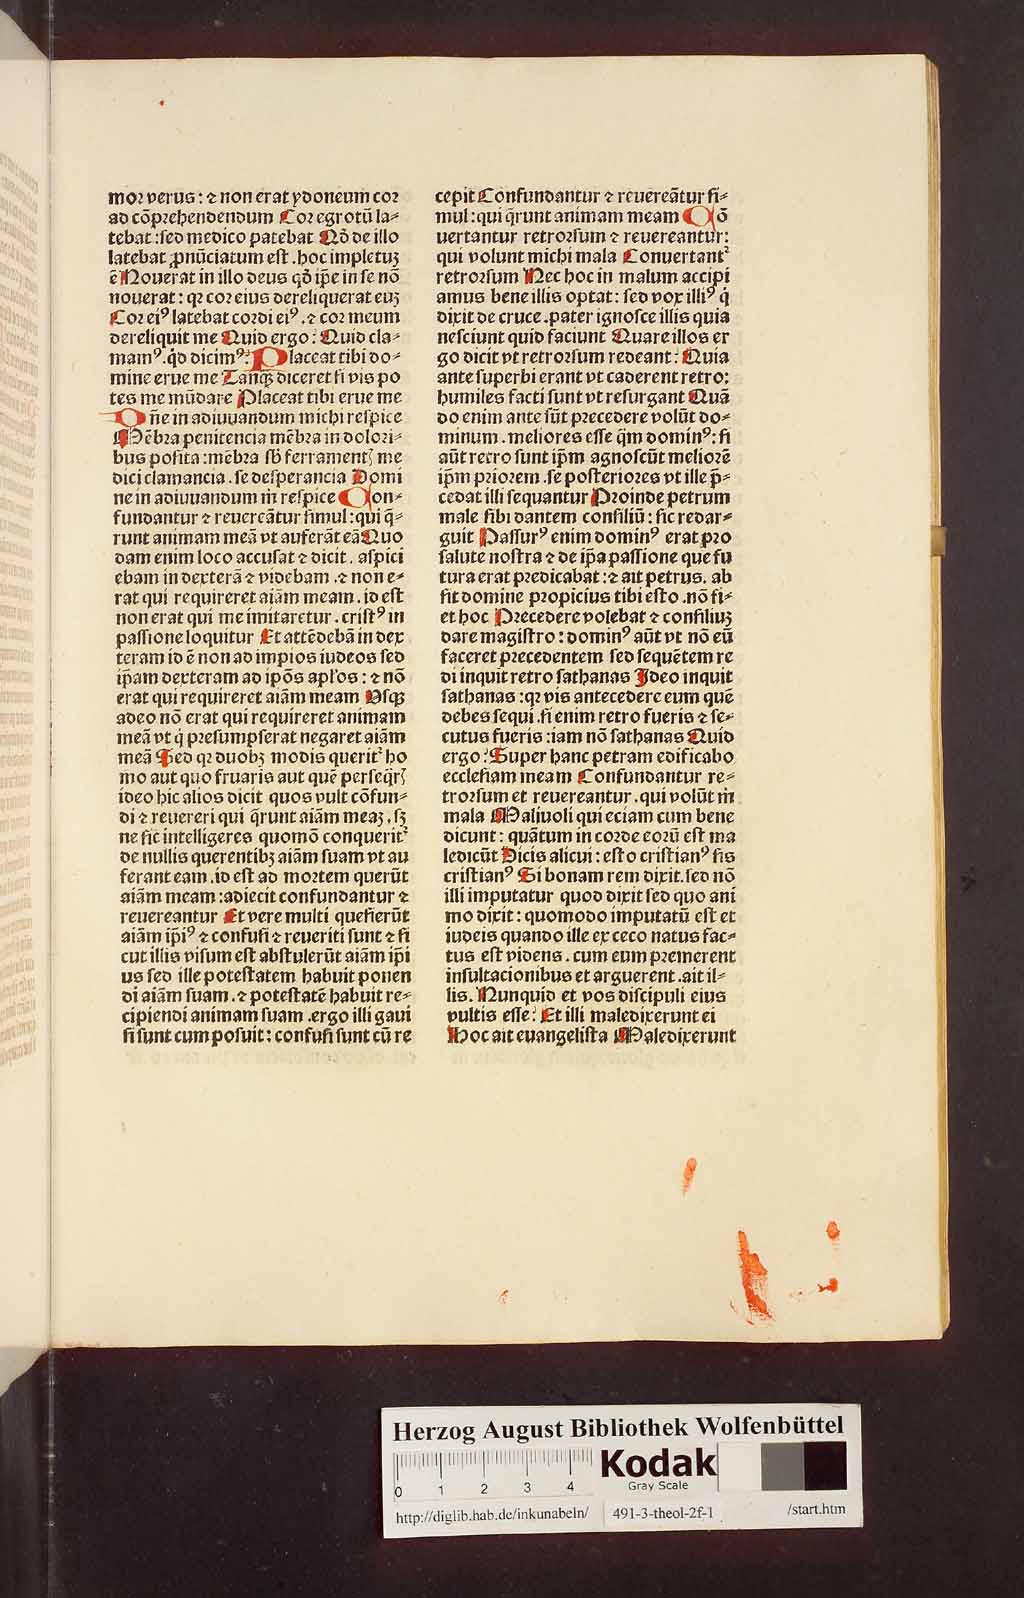 mor verus: ⁊ non erat ydoneum cor
ad cōprehendendum Cor egrotū la⸗
tebat :sed medico patebat Qđ de illo
latebat ꝓnūciatum est . hoc impletuꝫ
ē Nouerat in illo deus qđ ip̄e in se nō
nouerat : qꝛ cor eius dereliquerat euꝫ
Cor eiꝰ latebat cordi eiꝰ . ⁊ cor meum
dereliquit me Quid ergo : Quid cla⸗
mamꝰ .qđ dicimꝰ: Placeat tibi do⸗
mine erue me Tanqꝫ diceret si vis po
tes me mūdare Placeat tibi erue me
Dn̄e in adiuuandum michi respice
Mēbra penitencia mēbra in dolori⸗
bus posita :mēbra sb̄ ferramentꝭ me
dici clamancia . se desperancia Domi
ne in adiuuandum m̄ respice Con⸗
fundantur ⁊ reuereātur simul :qui q̄⸗
runt animam meā vt auferāt eā Quo
dam enim loco accusat ⁊ dicit . aspici
ebam in dexterā ⁊ videbam .⁊ non e⸗
rat qui requireret aiām meam . id est
non erat qui me imitaretur . cristꝰ in
passione loquitur Et attēdebā in dex
teram id ē non ad impios iudeos sed
ip̄am dexteram ad ip̄os ap̄los : ⁊ nō
erat qui requireret aiām meam Vsqꝫ
adeo nō erat qui requireret animam
meā vt q̇ presumpserat negaret aiām
meā Sed qꝛ duobꝫ modis querit᷑ ho
mo aut quo fruaris aut quē perseq̄rꝭ
ideo hic alios dicit quos vult cōfun⸗
di ⁊ reuereri qui q̄runt aiām meaꝫ . sꝫ
ne sic intelligeres quomō conquerit᷑
de nullis querentibꝫ aiām suam vt au
ferant eam . id est ad mortem querūt
aiām meam :adiecit confundantur ⁊
reuereantur Et vere multi quesierūt
aiām ip̄iꝰ ⁊ confusi ⁊ reueriti sunt ⁊ si
cut illis visum est abstulerūt aiām ip̄i
us sed ille potestatem habuit ponen
di aiām suam .⁊ potestatē habuit re⸗
cipiendi animam suam .ergo illi gaui
si sunt cum posuit : confusi sunt cū re
cepit Confundantur ⁊ reuereātur si⸗
mul :qui q̄runt animam meam Cō
uertantur retrorsum ⁊ reuereantur:
qui volunt michi mala Conuertant᷑
retrorsum Nec hoc in malum accipi
amus bene illis optat : sed vox illiꝰ q̇
dixit de cruce .pater ignosce illis quia
nesciunt quid faciunt Quare illos er
go dicit vt retrorsum redeant : Quia
ante superbi erant vt caderent retro:
humiles facti sunt vt resurgant Quā
do enim ante sūt precedere volūt do⸗
minum . meliores esse q̄m dominꝰ : si
aūt retro sunt ip̄m agnoscūt meliorē
ip̄m priorem .se posteriores vt ille p̄⸗
cedat illi sequantur Proinde petrum
male sibi dantem consiliū : sic redar⸗
guit Passurꝰ enim dominꝰ erat pro
salute nostra ⁊ de ip̄a passione que fu
tura erat predicabat :⁊ ait petrus. ab
sit domine propicius tibi esto .nō fi⸗
et hoc Precedere volebat ⁊ consiliuꝫ
dare magistro : dominꝰ aūt vt nō eū
faceret precedentem sed sequētem re
di inquit retro sathanas Ideo inquit
sathanas : qꝛ vis antecedere eum quē
debes sequi .si enim retro fueris ⁊ se⸗
cutus fueris :iam nō sathanas Quid
ergo : Super hanc petram edificabo
ecclesiam meam Confundantur re⸗
trorsum et reuereantur .qui volūt m̄
mala Maliuoli qui eciam cum bene
dicunt : quātum in corde eorū est ma
ledicūt Dicis alicui : esto cristianꝰ sis
cristianꝰ Si bonam rem dixit .sed nō
illi imputatur quod dixit sed quo ani
mo dixit : quomodo imputatū est et
iudeis quando ille ex ceco natus fac⸗
tus est videns . cum eum premerent
insultacionibus et arguerent .ait il⸗
lis. Nunquid et vos discipuli eius
vultis esse : Et illi maledixerunt ei
Hoc ait euangelista Maledixerunt
Herzog August Bibliothek Wolfenbüttel
0 1 2 3 4
Kodak
Gray Scale
http://diglib.hab.de/inkunabeln/ 491-3-theol-2f-1 /start.htm